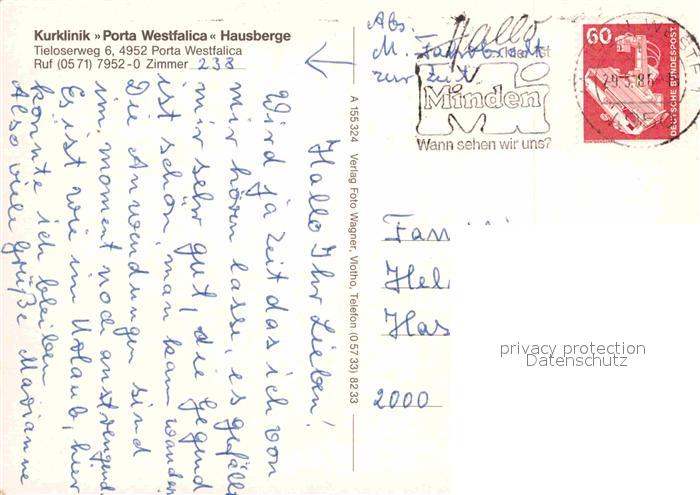 Kurklinik »Porta Westfalica« Hausberge
Tieloserweg 6, 4952 Porta Westfalica
Ruf (05 71) 79 52-0 Zimmer 238
Hallo Ihr Lieben!
Wird ja Zeit das ich von
mir hören lasse, es gefällt
mir sehr gut, die Gegend
ist schön, man kann wandern
Die Anwendungen sind
im moment noch anstrengend.
Es ist wie im Urlaub, hier
könnte ich bleiben
Also viele Grüße Marianne
A 155.324 Verlag Foto Wagner, Vlotho, Telefon (0 57 33) 82 33
Abs.
M.
zur Zeit
Hallo
Minden
Wann sehen wir uns?
60
DEUTSCHE BUNDESPOST
Fam
Hel
Has
2000
privacy protection
Datenschutz